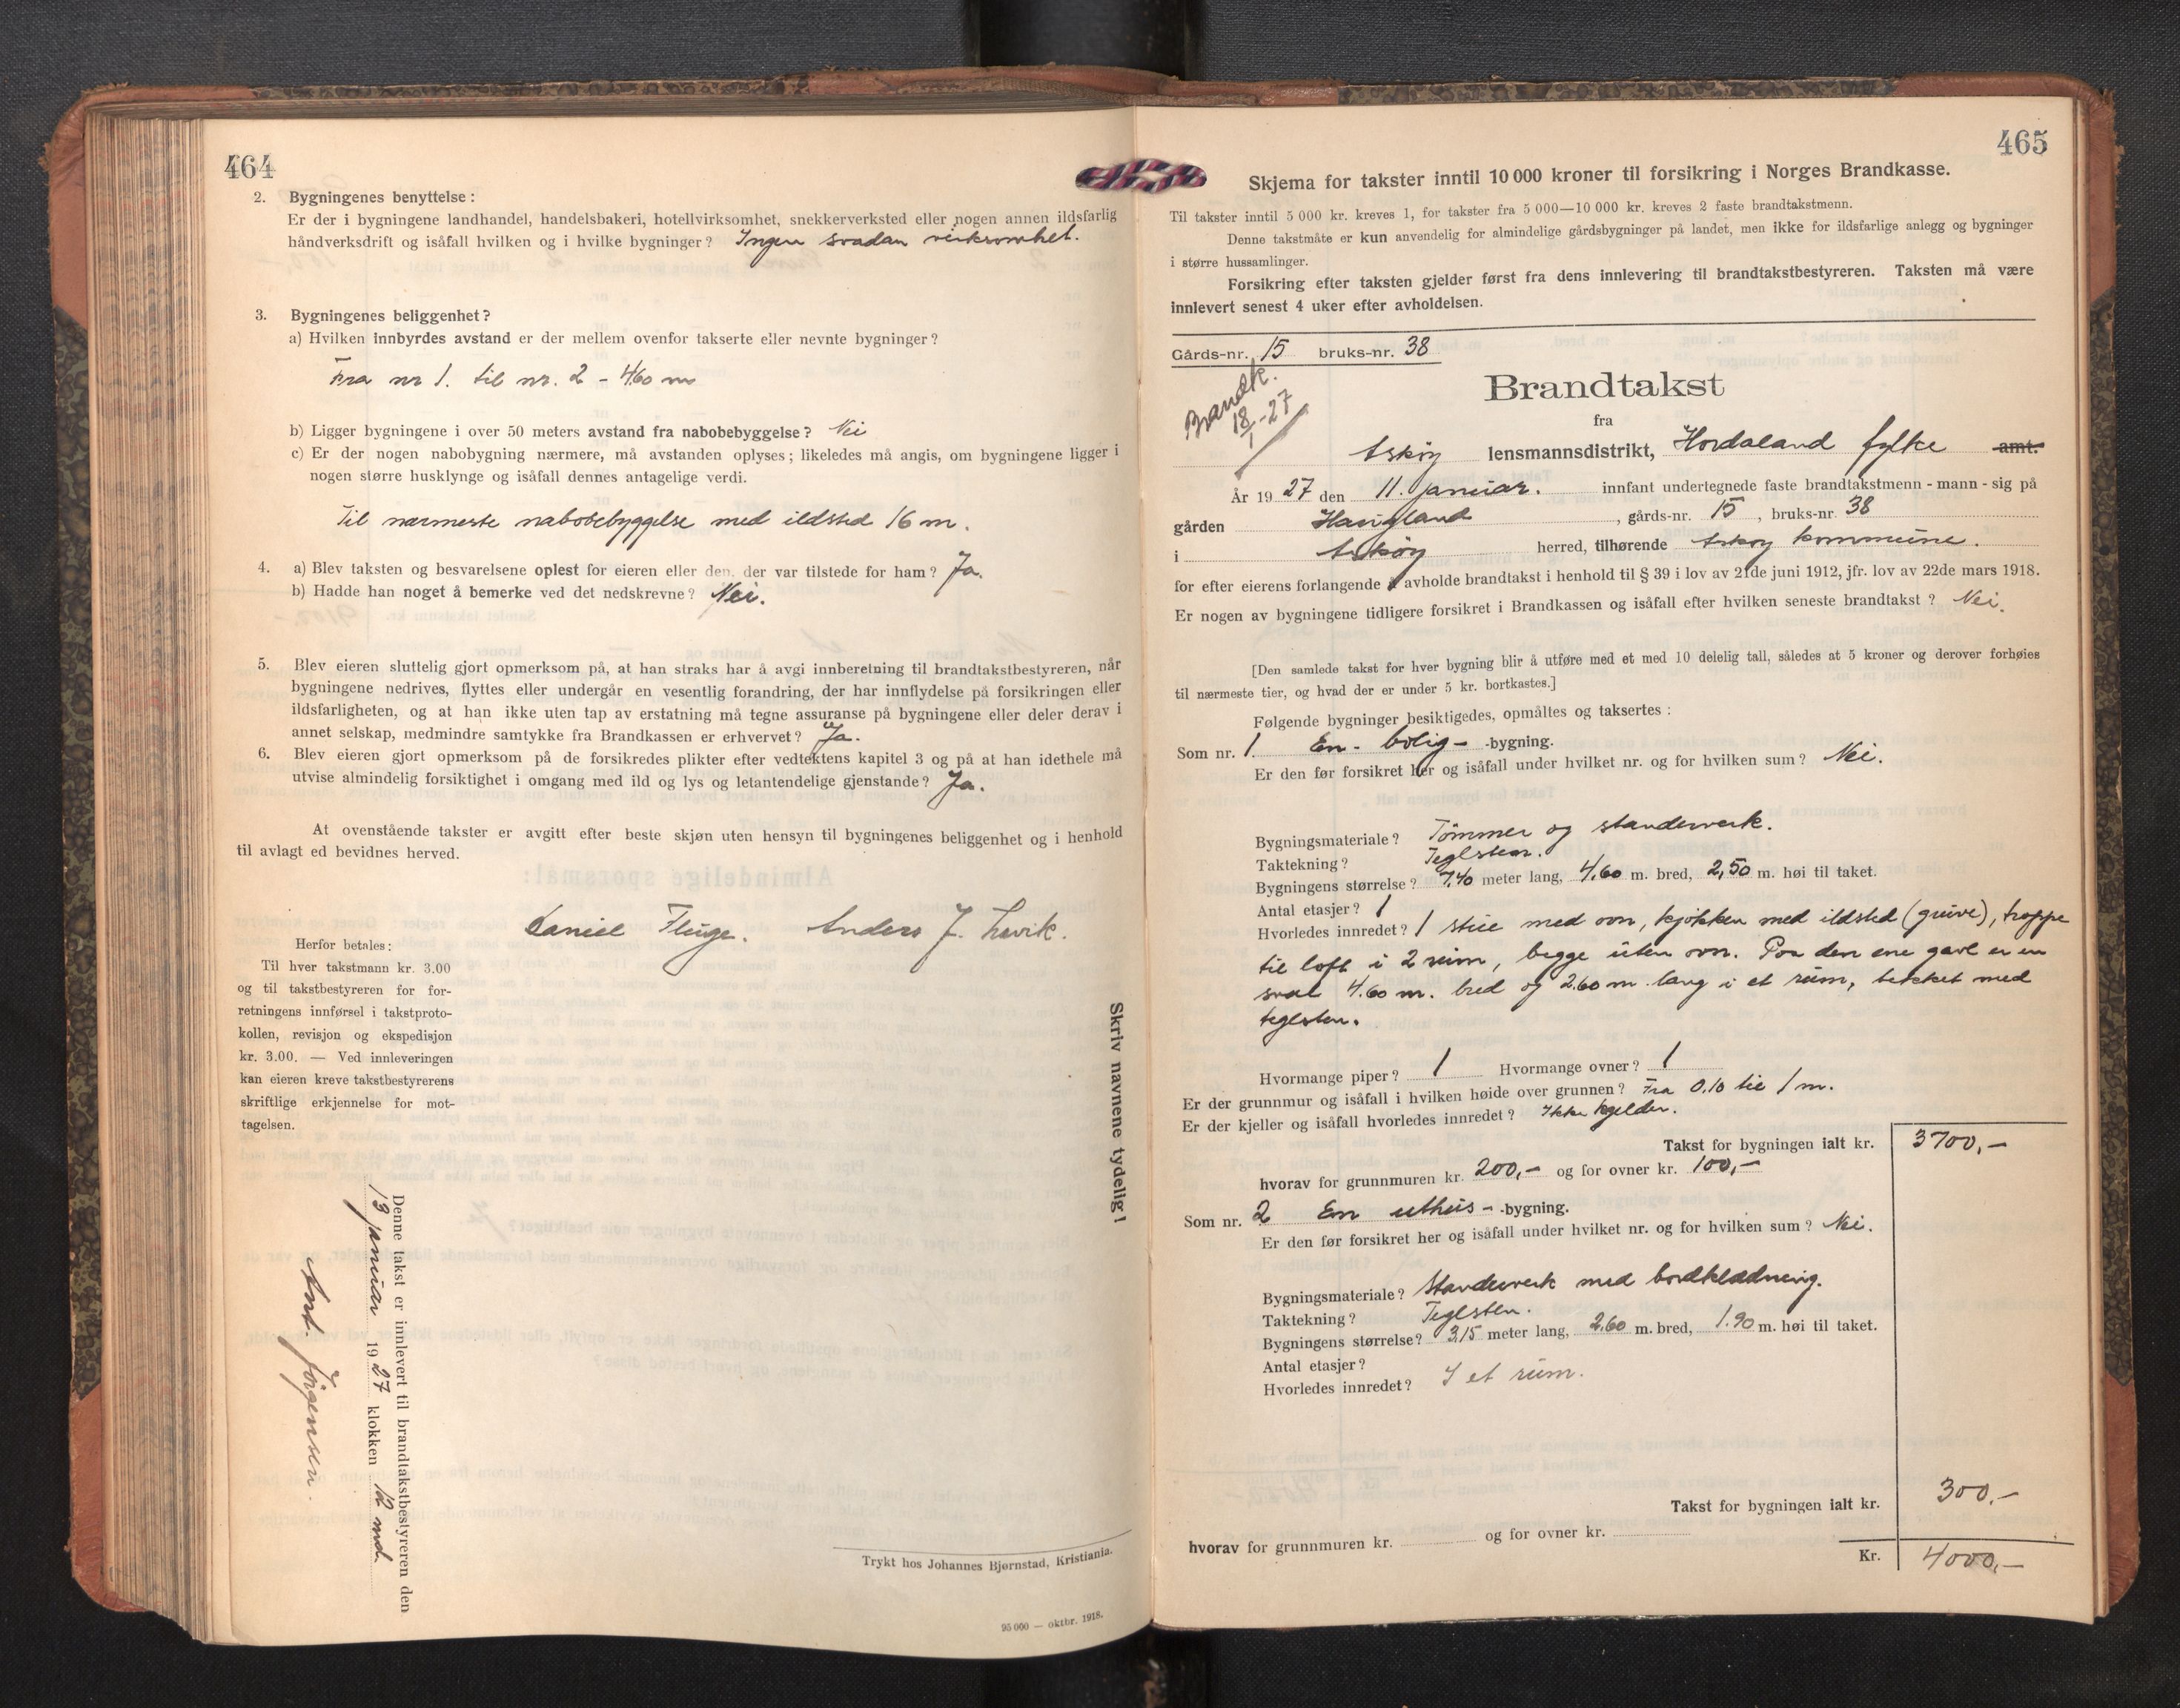 464
2. Bygningenes benyttelse:
Er der i bygningene landhandel, handelsbakeri, hotellvirksomhet, snekkerverksted eller nogen annen ildsfarlig
håndverksdrift og isåfall hvilken og i hvilke bygninger? Ingen saadan virksomhet.
3. Bygningenes beliggenhet?
a) Hvilken innbyrdes avstand er der mellem ovenfor takserte eller nevnte bygninger?
Fra nr 1. til nr. 2 - 4.60 m
b) Ligger bygningene i over 50 meters avstand fra nabobebyggelse? Nei
c) Er der nogen nabobygning nærmere, må avstanden oplyses; likeledes må angis, om bygningene ligger i
nogen større husklynge og isåfall dennes antagelige verdi.
Til nærmeste nabobebyggelse med ildsted 16 m.
4. a) Blev taksten og besvarelsene oplest for eieren eller den, der var tilstede for ham? Ja.
b) Hadde han noget å bemerke ved det nedskrevne? Nei.
5. Blev eieren sluttelig gjort opmerksom på, at han straks har å avgi innberetning til brandtakstbestyreren, når
bygningene nedrives, flyttes eller undergår en vesentlig forandring, der har innflydelse på forsikringen eller
ildsfarligheten, og at han ikke uten tap av erstatning må tegne assuranse på bygningene eller deler derav i
annet selskap, medmindre samtykke fra Brandkassen er erhvervet? Ja.
6. Blev eieren gjort opmerksom på de forsikredes plikter efter vedtektens kapitel 3 og på at han idethele må
utvise almindelig forsiktighet i omgang med ild og lys og letantendelige gjenstande? Ja.
At ovenstående takster er avgitt efter beste skjøn uten hensyn til bygningenes beliggenhet og i henhold
til avlagt ed bevidnes herved.
Daniel Fluge. Anders J.
Herfor betales:
Til hver takstmann kr. 3.00
og til takstbestyreren for for-
retningens innførsel i takstproto-
kollen, revisjon og ekspedisjon
kr. 3.00. — Ved innleveringen
kan eieren kreve takstbestyrerens
skriftlige erkjennelse for mot-
tagelsen.
Skriv navnene tydelig!
Denne takst er innlevert til brandtakstbestyreren den
13 januar 1927 klokken 12 md.
Ant. Jørgensen.
Trykt hos Johannes Bjørnstad, Kristiania.
95 000 — oktbr. 1918.
465
Skjema for takster inntil 10 000 kroner til forsikring i Norges Brandkasse.
Til takster inntil 5 000 kr. kreves 1, for takster fra 5 000—10 000 kr. kreves 2 faste brandtakstmenn.
Denne takstmåte er kun anvendelig for almindelige gårdsbygninger på landet, men ikke for ildsfarlige anlegg og bygninger
i større hussamlinger.
Forsikring efter taksten gjelder først fra dens innlevering til brandtakstbestyreren. Taksten må være
innlevert senest 4 uker efter avholdelsen.
Gårds-nr. 15 bruks-nr. 38
Brandk.
18/1-27
Brandtakst
fra
Askøy lensmannsdistrikt, Hordaland fylke amt.
År 1927 den 11. januar. innfant undertegnede faste brandtakstmenn - mann - sig på
gården Haugland, gårds-nr. 15, bruks-nr. 38
i Askøy herred, tilhørende Askøy kommune.
for efter eierens forlangende å avholde brandtakst i henhold til § 39 i lov av 21de juni 1912, jfr. lov av 22de mars 1918.
Er nogen av bygningene tidligere forsikret i Brandkassen og isåfall efter hvilken seneste brandtakst? Nei.
[Den samlede takst for hver bygning blir å utføre med et med 10 delelig tall, således at 5 kroner og derover forhøies
til nærmeste tier, og hvad der er under 5 kr. bortkastes.]
Følgende bygninger besiktigedes, opmåltes og taksertes:
Som nr. 1. En - bolig - -bygning.
Er den før forsikret her og isåfall under hvilket nr. og for hvilken sum? Nei.
Bygningsmateriale? Tømmer og standerverk.
Taktekning? Teglsten.
Bygningens størrelse? 7,40 meter lang, 4,60 m. bred, 2,50 m. høi til taket.
Antal etasjer? 1
Hvorledes innredet? 1 stue med ovn, kjøkken med ildsted (gruve), trappe
til loft i 2 rum, begge uten ovn. Paa den ene gavl er en
sval 4.60 m. bred og 2.60 m lang i et rum, tekket med
teglsten.
Hvormange piper? 1 Hvormange ovner? 1
Er der grunnmur og isåfall i hvilken høide over grunnen? Fra 0.10 til 1 m.
Er der kjeller og isåfall hvorledes innredet? Ikke kjelder.
Takst for bygningen ialt kr. 3700,-
hvorav for grunnmuren kr. 200,- og for ovner kr. 100,-
Som nr. 2 En uthus - -bygning.
Er den før forsikret her og isåfall under hvilket nr. og for hvilken sum? Nei.
Bygningsmateriale? Standerverk med bordklædning.
Taktekning? Teglsten.
Bygningens størrelse? 3,15 meter lang, 2.60 m. bred, 1.90 m. høi til taket.
Antal etasjer?
Hvorledes innredet? I et rum.
Takst for bygningen ialt kr. 300.-
hvorav for grunnmuren kr. og for ovner kr.
Kr. 4000,-